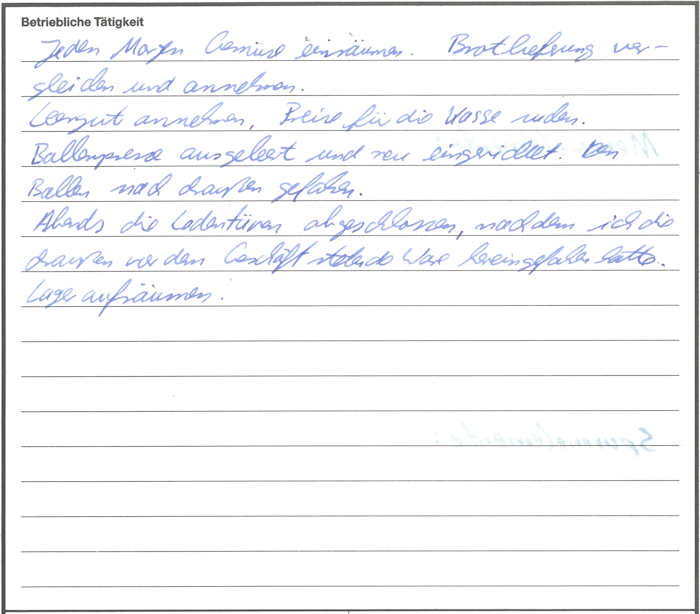 Betriebliche Tätigkeit
Jeden Morgen Gemüse einräumen. Brotlieferung ver-
gleichen und annehmen.
Leergut annehmen, Preise für die Kasse suchen.
Ballenpresse ausgeleert und neu eingerichtet. Den
Ballen nach draußen gefahren.
Abends die Ladentüren abgeschlossen, nachdem ich die
draußen vor dem Geschäft stehende Ware hereingefahren hatte.
Lager aufräumen.